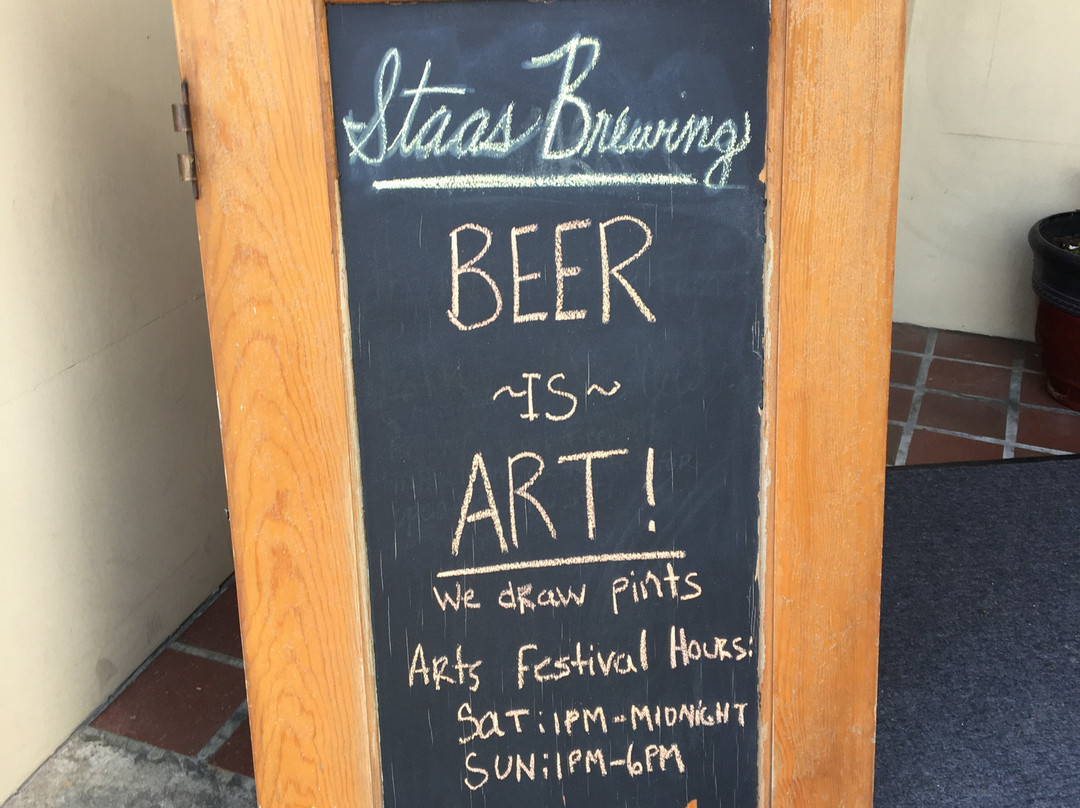 Staas Brewing
BEER
~IS~
ART!
We draw pints
Arts Festival Hours:
SaT: 1PM-MIDNIGHT
SUN: 1PM-6PM